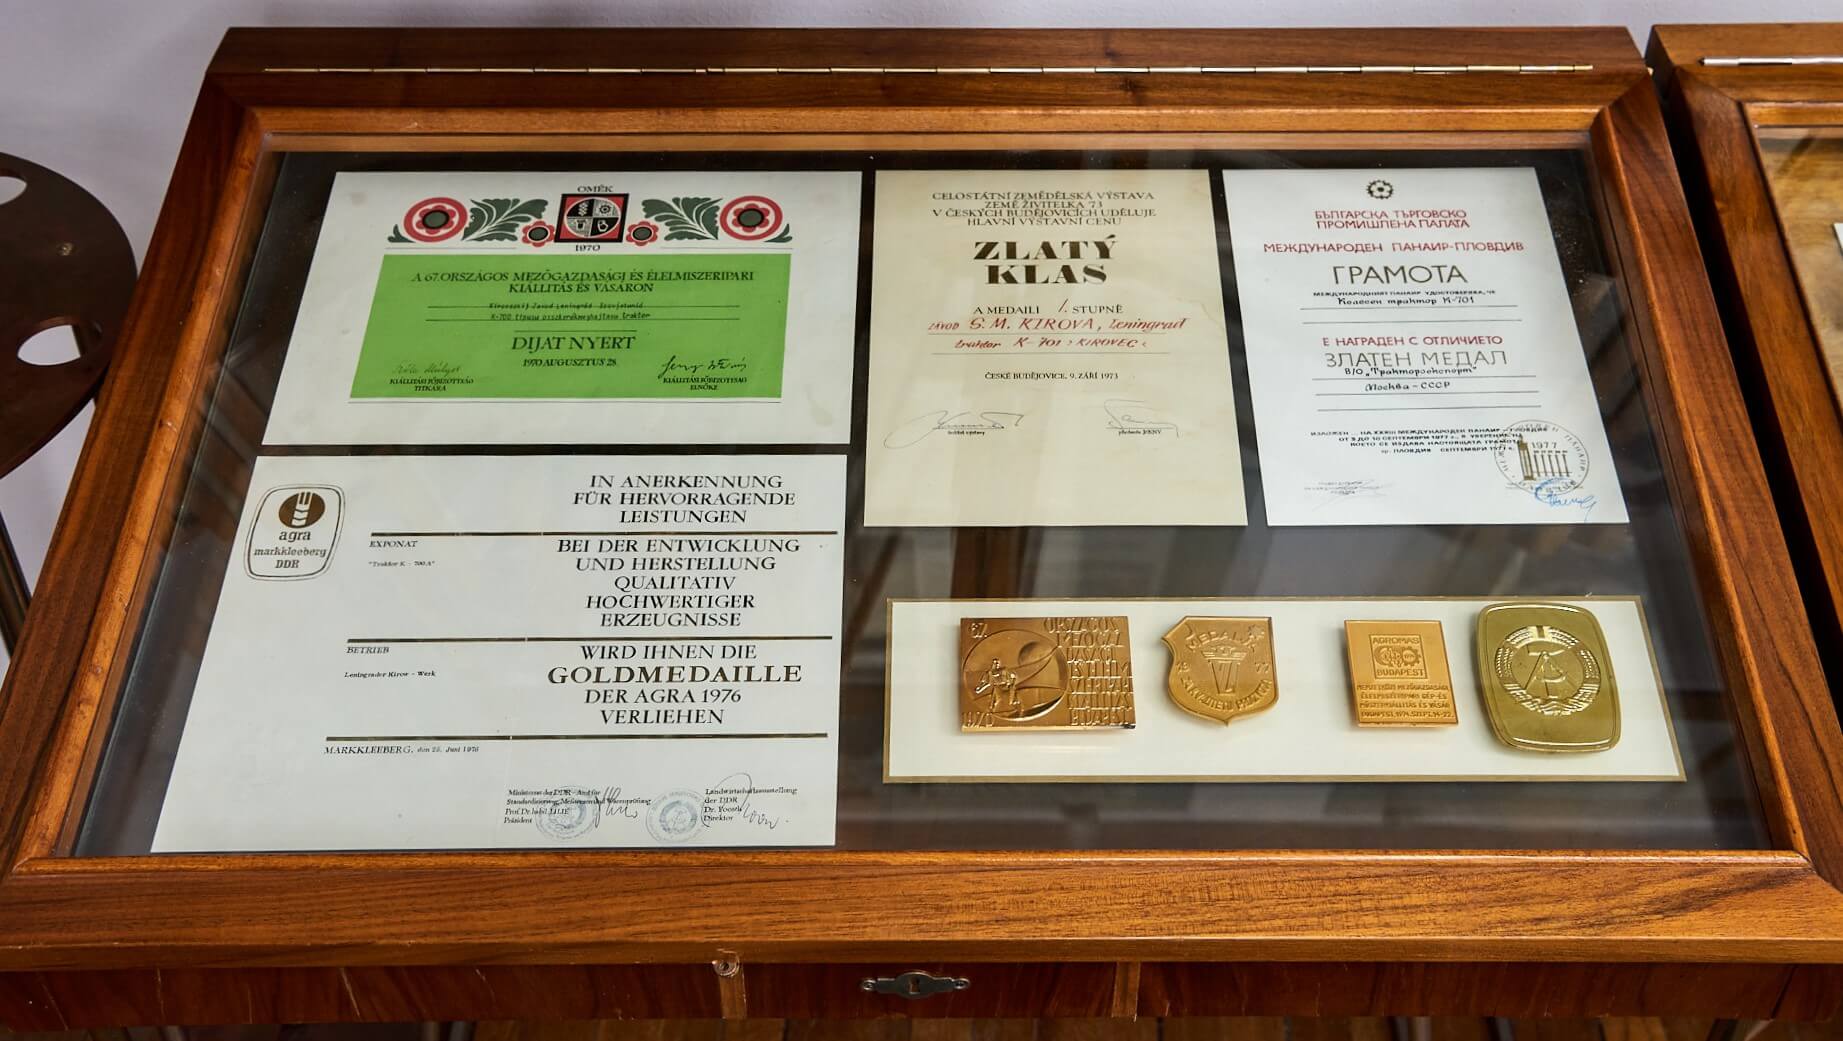 OMÉK
1970
A 67. ORSZÁGOS MEZŐGAZDASÁGI ÉS ÉLELMISZERIPARI
KIÁLLÍTÁS ÉS VÁSÁRON
K-700 típusu összkerékmeghajtásu traktor
DIJAT NYERT
1970 AUGUSZTUS 28.
KIÁLLITÁSI FŐBIZOTTSÁG
TITKÁRA
KIÁLLITÁSI FŐBIZOTTSÁG
ELNÖKE
CELOSTÁTNÍ ZEMĚDĚLSKÁ VÝSTAVA
ZEMĚ ŽIVITELKA 73
V ČESKÝCH BUDĚJOVICÍCH UDĚLUJE
HLAVNÍ VÝSTAVNÍ CENU
ZLATÝ
KLAS
A MEDAILI 1. STUPNĚ
ZÁVOD S. M. KIROVA, Leningrad
traktor K-701 › KIROVEC ‹
ČESKÉ BUDĚJOVICE, 9. ZÁŘÍ 1973
БЪЛГАРСКА ТЪРГОВСКО
ПРОМИШЛЕНА ПАЛАТА
МЕЖДУНАРОДЕН ПАНАИР-ПЛОВДИВ
ГРАМОТА
МЕЖДУНАРОДНИЯТ ПАНАИР УДОСТОВЕРЯВА, ЧЕ
Колесен трактор К-701
Е НАГРАДЕН С ОТЛИЧИЕТО
ЗЛАТЕН МЕДАЛ
В/О „Трактороекспорт"
Москва - СССР
ИЗЛОЖЕН ... НА XXXIII МЕЖДУНАРОДЕН ПАНАИР - ПЛОВДИВ
КОЕТО СЕ ИЗДАВА НАСТОЯЩАТА ГРАМОТА
гр. ПЛОВДИВ СЕПТЕМВРИ 1977 г.
1977
agra
markkleeberg
DDR
IN ANERKENNUNG
FÜR HERVORRAGENDE
LEISTUNGEN
EXPONAT
"Traktor K - 700 A"
BEI DER ENTWICKLUNG
UND HERSTELLUNG
QUALITATIV
HOCHWERTIGER
ERZEUGNISSE
BETRIEB
Leningrader Kirow - Werk
WIRD IHNEN DIE
GOLDMEDAILLE
DER AGRA 1976
VERLIEHEN
MARKKLEEBERG, den 25. Juni 1976
Ministerrat der DDR - Amt für
Standardisierung, Meßwesen und Warenprüfung
Prof. Dr. habil. LILIE
Präsident
Landwirtschaftsausstellung
der DDR
Direktor
67.
ORSZÁGOS
MEZŐGAZ
DASÁGI
KIÁLLÍTÁS
BUDAPEST
1970
MEDALJA
19 77
ZA KVALITETU
AGROMAS
BUDAPEST
NEMZETKÖZI MEZŐGAZDASÁGI
ÉLELMISZERIPARI GÉP-ÉS
MŰSZERKIÁLLÍTÁS ÉS VÁSÁR
BUDAPEST, 1974. SZEPT. 14-22.